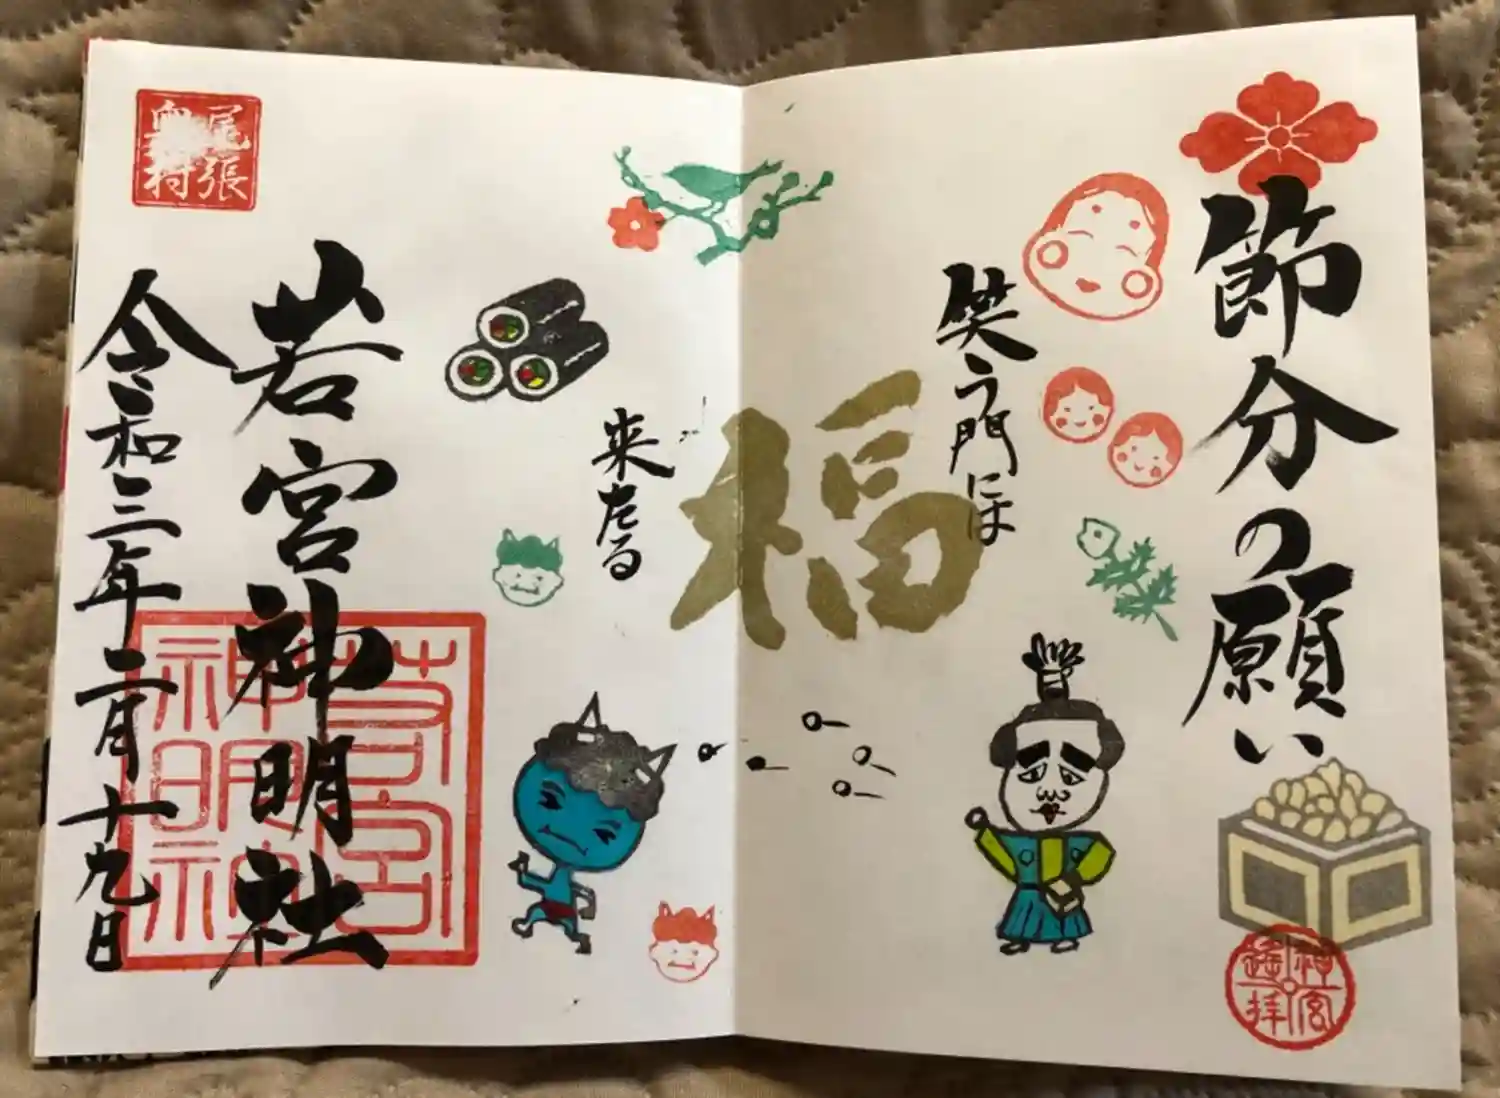 節分の願い
神宮
遥拝
笑う門には
福
来たる
若宮神明社
若宮
神明社
令和三年二月十九日
尾張